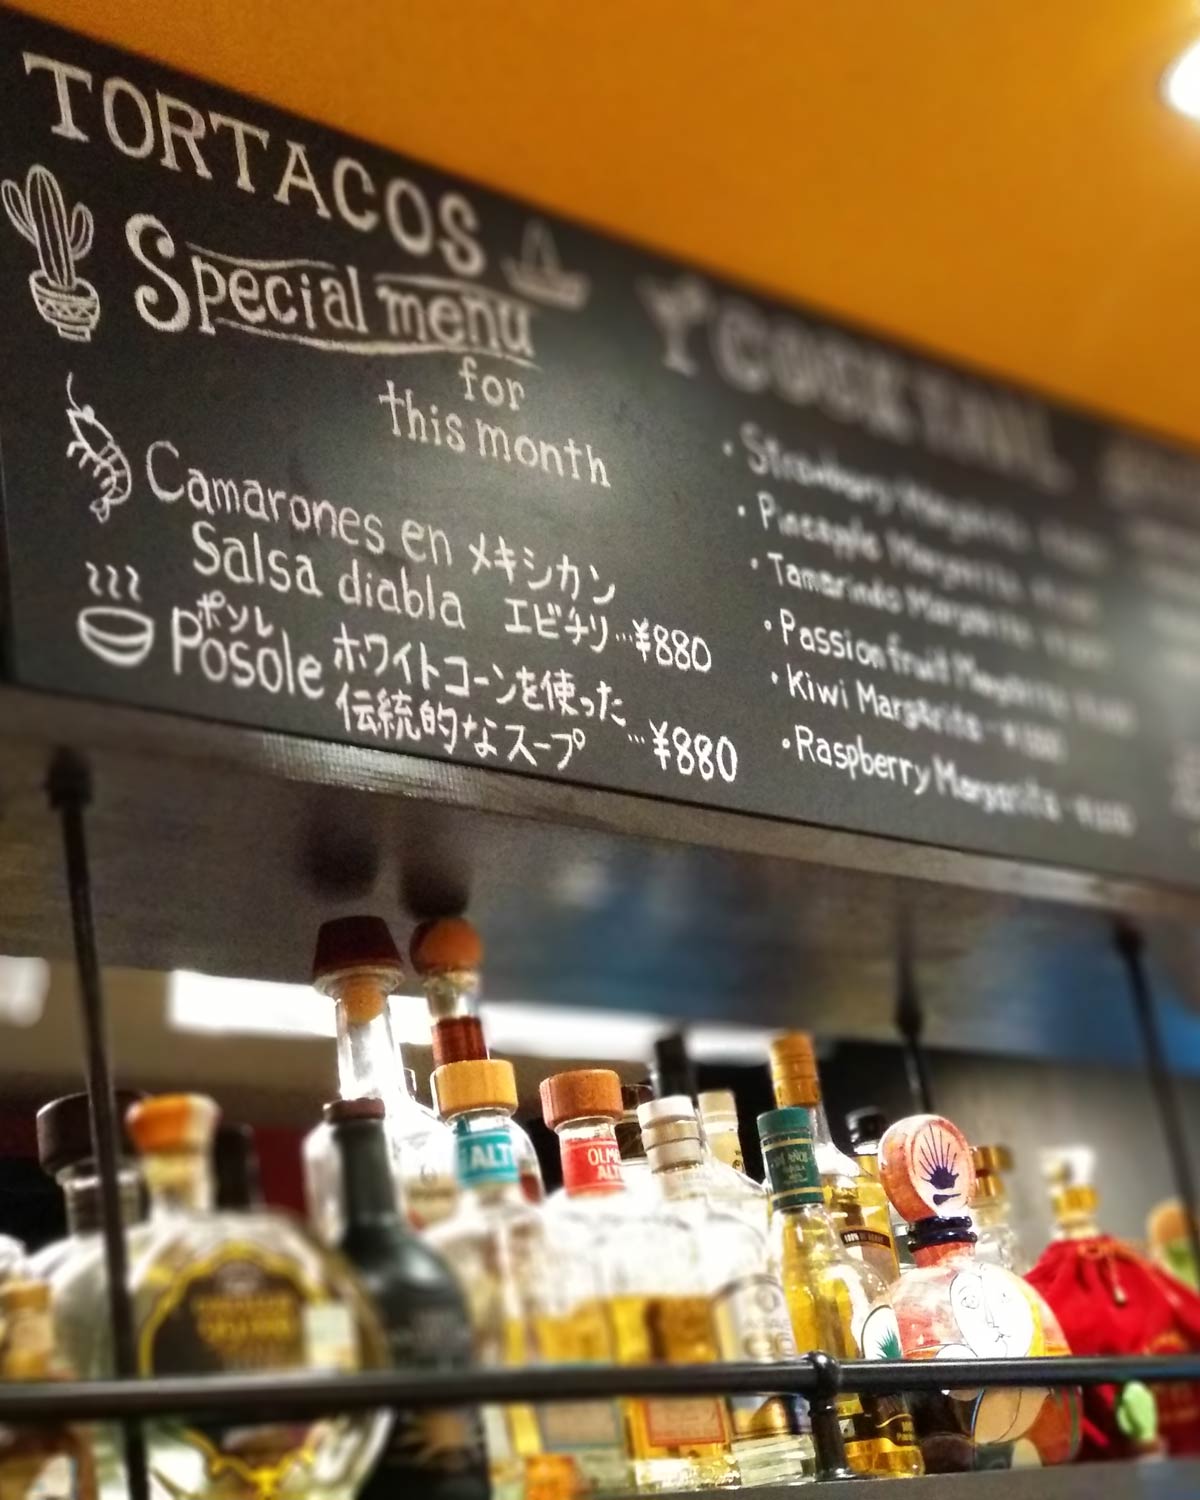 TORTACOS
Special menu
for
this month
Camarones en メキシカン
Salsa diabla エビチリ…¥880
ポソレ
Posole ホワイトコーンを使った
伝統的なスープ …¥880
COCKTAIL
・Strawberry Margarita
・Pineapple Margarita
・Tamarindo Margarita
・Passionfruit Margarita
・Kiwi Margarita
・Raspberry Margarita
ALT
OLME
ALT